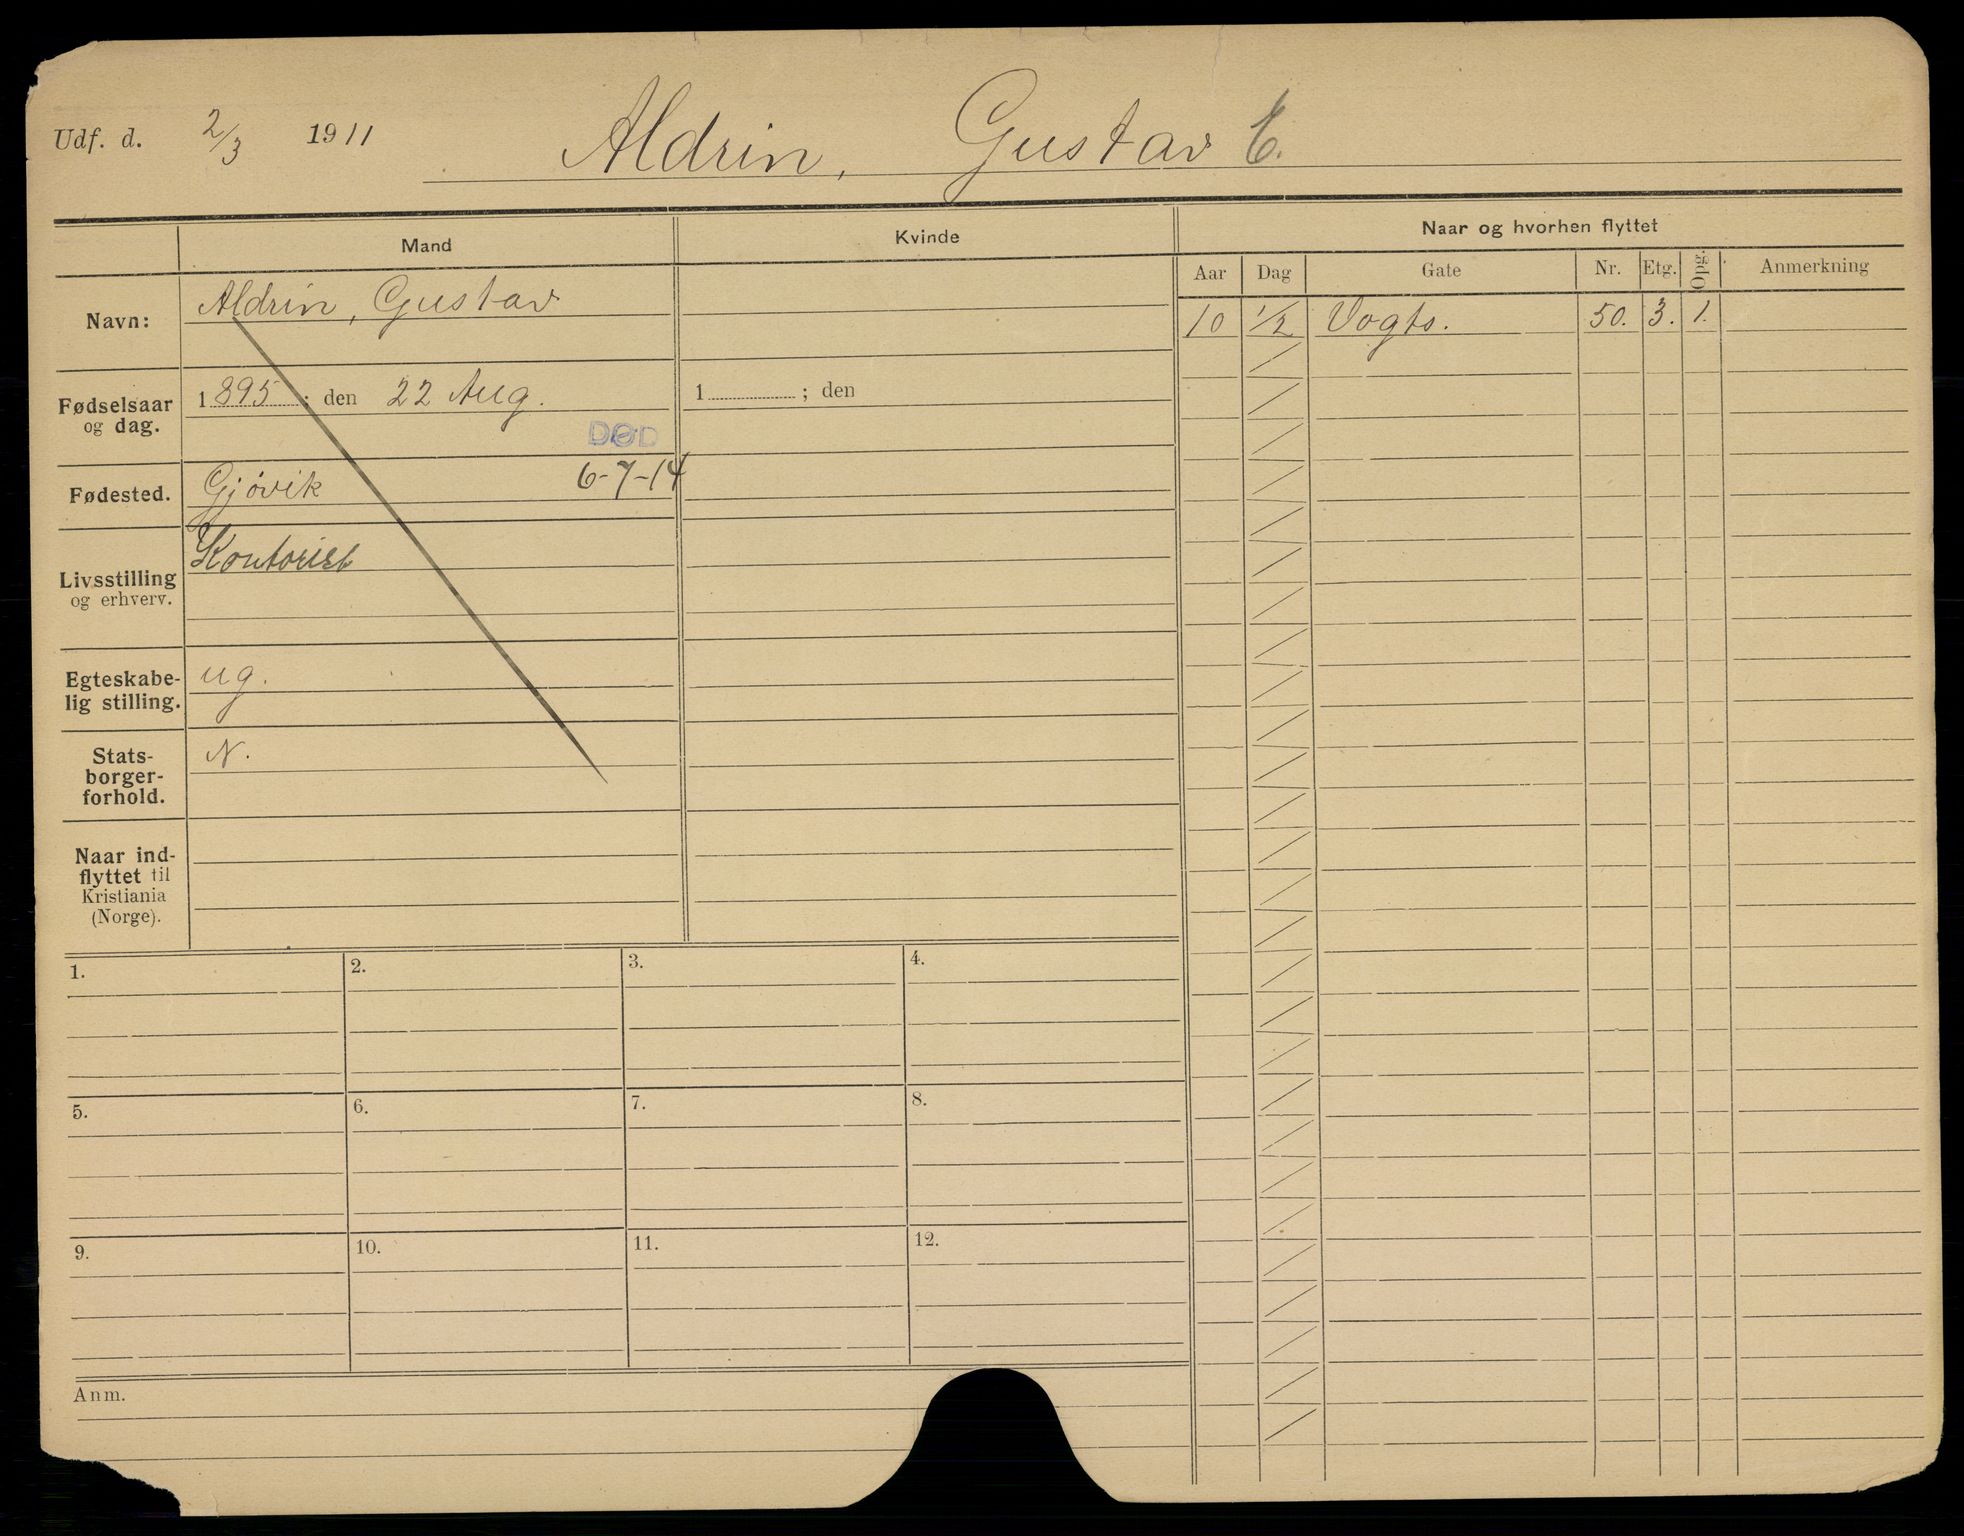 Udf. d. 2/3 1911 Aldrin, Gustav E.
Mand Kvinde Naar og hvorhen flyttet
Aar Dag Gate Nr. Etg. Opg. Anmerkning
Navn: Aldrin, Gustav
10 1/2 Vogts. 50. 3. 1.
Fødselsaar og dag. 1895; den 22 Aug. 1 ; den
DØD
Fødested. Gjøvik 6-7-14
Livsstilling og erhverv. Kontorist
Egteskabe-
lig stilling. ug.
Stats-
borger-
forhold. N.
Naar ind-
flyttet til
Kristiania
(Norge).
1. 2. 3. 4.
5. 6. 7. 8.
9. 10. 11. 12.
Anm.